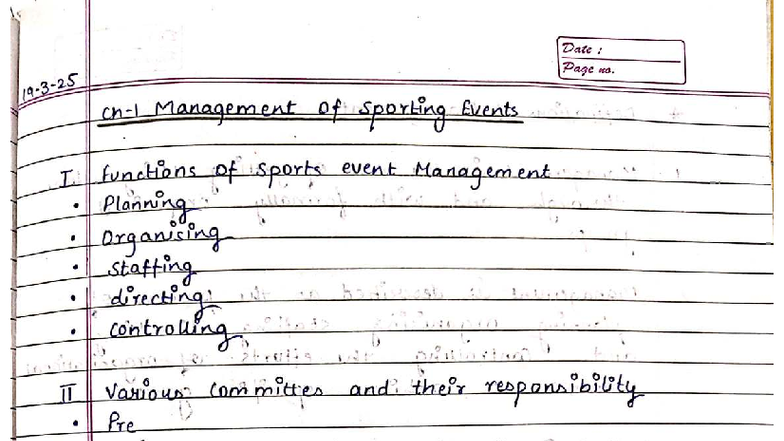 Date :
Page no.
19-3-25
Ch-1 Management of Sporting Events
I. Functions of Sports event Management
• Planning
• Organising
• Staffing
• directing
• Controlling
II Various Committes and their responsibility
• Pre